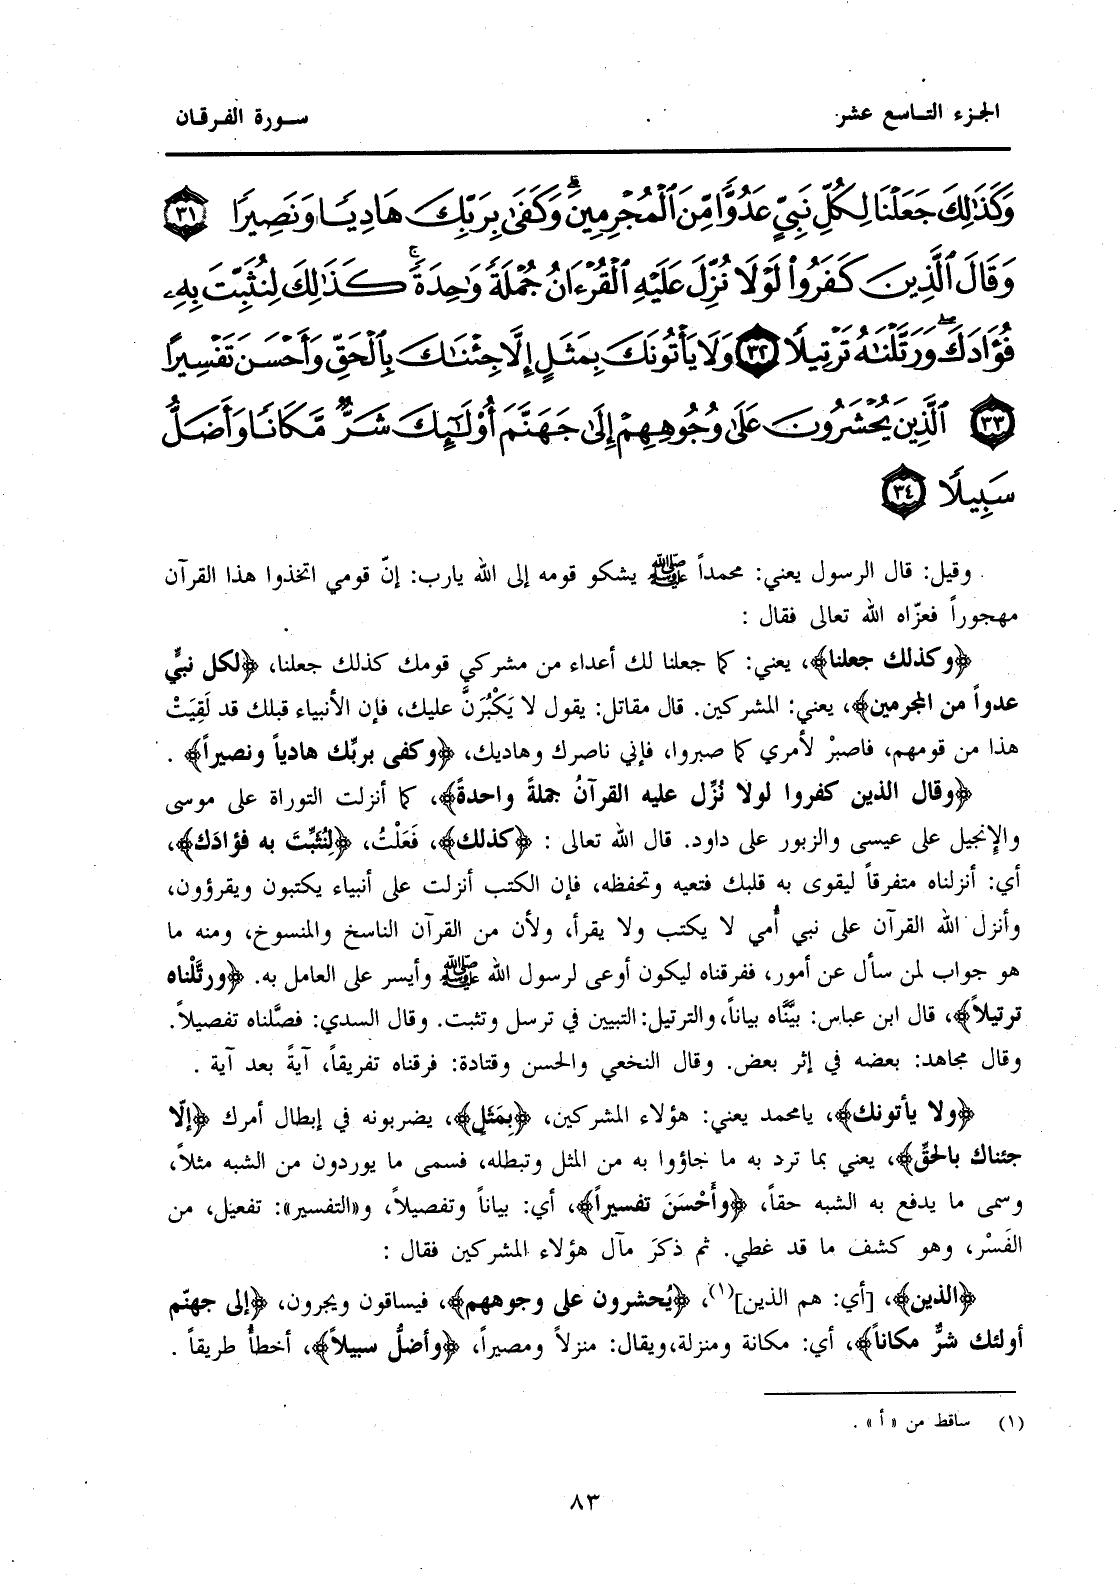 الجزء التاسع عشر
سورة الفرقان
وَكَذَٰلِكَ جَعَلْنَا لِكُلِّ نَبِيٍّ عَدُوًّا مِّنَ ٱلْمُجْرِمِينَ ۗ وَكَفَىٰ بِرَبِّكَ هَادِيًا وَنَصِيرًا ٣١
وَقَالَ ٱلَّذِينَ كَفَرُوا۟ لَوْلَا نُزِّلَ عَلَيْهِ ٱلْقُرْءَانُ جُمْلَةً وَٰحِدَةً ۚ كَذَٰلِكَ لِنُثَبِّتَ بِهِۦ
فُؤَادَكَ ۖ وَرَتَّلْنَٰهُ تَرْتِيلًا ٣٢ وَلَا يَأْتُونَكَ بِمَثَلٍ إِلَّا جِئْنَٰكَ بِٱلْحَقِّ وَأَحْسَنَ تَفْسِيرًا
٣٣ ٱلَّذِينَ يُحْشَرُونَ عَلَىٰ وُجُوهِهِمْ إِلَىٰ جَهَنَّمَ أُو۟لَٰٓئِكَ شَرٌّ مَّكَانًا وَأَضَلُّ
سَبِيلًا ٣٤
وقيل: قال الرسول يعني: محمداً ﷺ يشكو قومه إلى الله يارب: إنّ قومي اتخذوا هذا القرآن
مهجوراً فعزّاه الله تعالى فقال :
﴿وكذلك جعلنا﴾، يعني: كما جعلنا لك أعداء من مشركي قومك كذلك جعلنا، ﴿لكل نبيٍّ
عدواً من المجرمين﴾، يعني: المشركين. قال مقاتل: يقول لا يَكْبُرَنَّ عليك، فإن الأنبياء قبلك قد لَقِيَتْ
هذا من قومهم، فاصبرْ لأمري كما صبروا، فإني ناصرك وهاديك، ﴿وكفى بربِّك هادياً ونصيراً﴾ .
﴿وقال الذين كفروا لولا نُزِّل عليه القرآنُ جملةً واحدةً﴾، كما أنزلت التوراة على موسى
والإنجيل على عيسى والزبور على داود. قال الله تعالى : ﴿كذلك﴾، فَعَلْتُ، ﴿لِنُثَبِّتَ به فؤادَك﴾،
أي: أنزلناه متفرقاً ليقوى به قلبك فتعيه وتحفظه، فإن الكتب أنزلت على أنبياء يكتبون ويقرؤون،
وأنزل الله القرآن على نبي أُمي لا يكتب ولا يقرأ، ولأن من القرآن الناسخ والمنسوخ، ومنه ما
هو جواب لمن سأل عن أمور، ففرقناه ليكون أوعى لرسول الله ﷺ وأيسر على العامل به. ﴿ورتَّلْناه
ترتيلاً﴾، قال ابن عباس: بيَّنَّاه بياناً، والترتيل: التبيين في ترسل وتثبت. وقال السدي: فصَّلناه تفصيلاً.
وقال مجاهد: بعضه في إثر بعض. وقال النخعي والحسن وقتادة: فرقناه تفريقاً، آيةً بعد آية .
﴿ولا يأتونك﴾، يامحمد يعني: هؤلاء المشركين، ﴿بِمَثَلٍ﴾، يضربونه في إبطال أمرك ﴿إلّا
جئناك بالحقِّ﴾، يعني بما ترد به ما جاؤوا به من المثل وتبطله، فسمى ما يوردون من الشبه مثلاً،
وسمى ما يدفع به الشبه حقاً، ﴿وأَحْسَنَ تفسيراً﴾، أي: بياناً وتفصيلاً، و«التفسير»: تفعيل، من
الفَسْر، وهو كشف ما قد غطي. ثم ذكرَ مآل هؤلاء المشركين فقال :
﴿الذين﴾، [أي: هم الذين](١)، ﴿يُحشرون على وجوههم﴾، فيساقون ويجرون، ﴿إلى جهنّم
أولئك شرٌّ مكاناً﴾، أي: مكانة ومنزلة،ويقال: منزلاً ومصيراً، ﴿وأضلُّ سبيلاً﴾، أخطأُ طريقاً .
(١) ساقط من «أ» .
٨٣